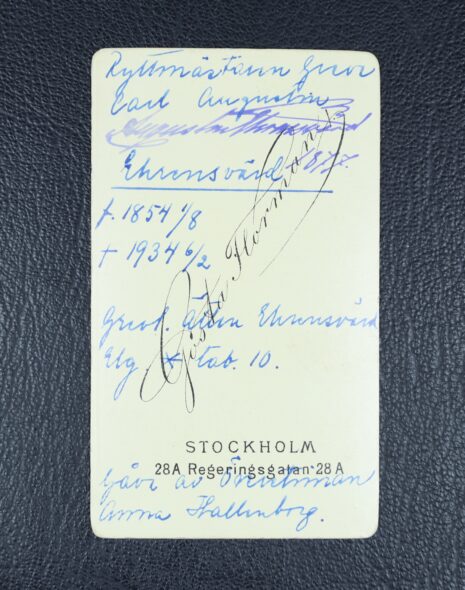 Ryttmästaren Greve
Carl Augustin
Ehrensvärd
1877.
f. 1854 1/8
† 1934 6/2
Gösta Florman
Grevl. Ätten Ehrensvärd
Elg. tab. 10.
STOCKHOLM
28A Regeringsgatan 28A
Gåva av
Anna Hallenborg.